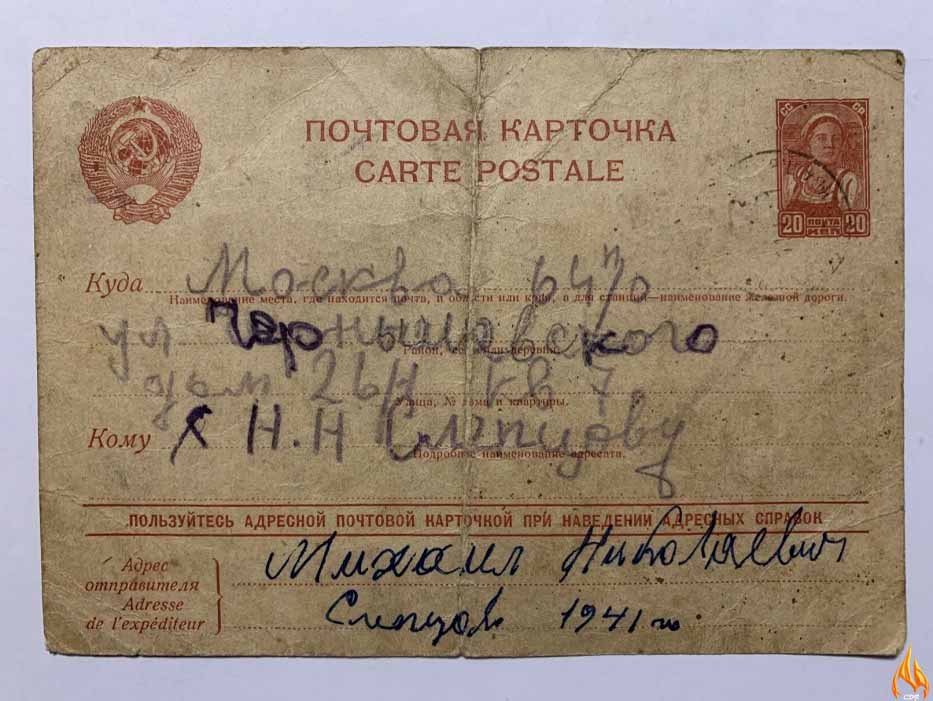 ПОЧТОВАЯ КАРТОЧКА
CARTE POSTALE
СС СР
20 ПОЧТА КОП 20
Куда Москва 64
Наименование места, где находится почта, и области или края, а для станций—наименование железной дороги.
ул Чернышовского
Район, село или деревня.
дом 26 кв 7
Улица, № дома и квартиры.
Кому Н.Н Слепцову
Подробное наименование адресата.
ПОЛЬЗУЙТЕСЬ АДРЕСНОЙ ПОЧТОВОЙ КАРТОЧКОЙ ПРИ НАВЕДЕНИИ АДРЕСНЫХ СПРАВОК
Адрес отправителя
Adresse de l'expéditeur
Михаил Николаевич
Слепцов 1941